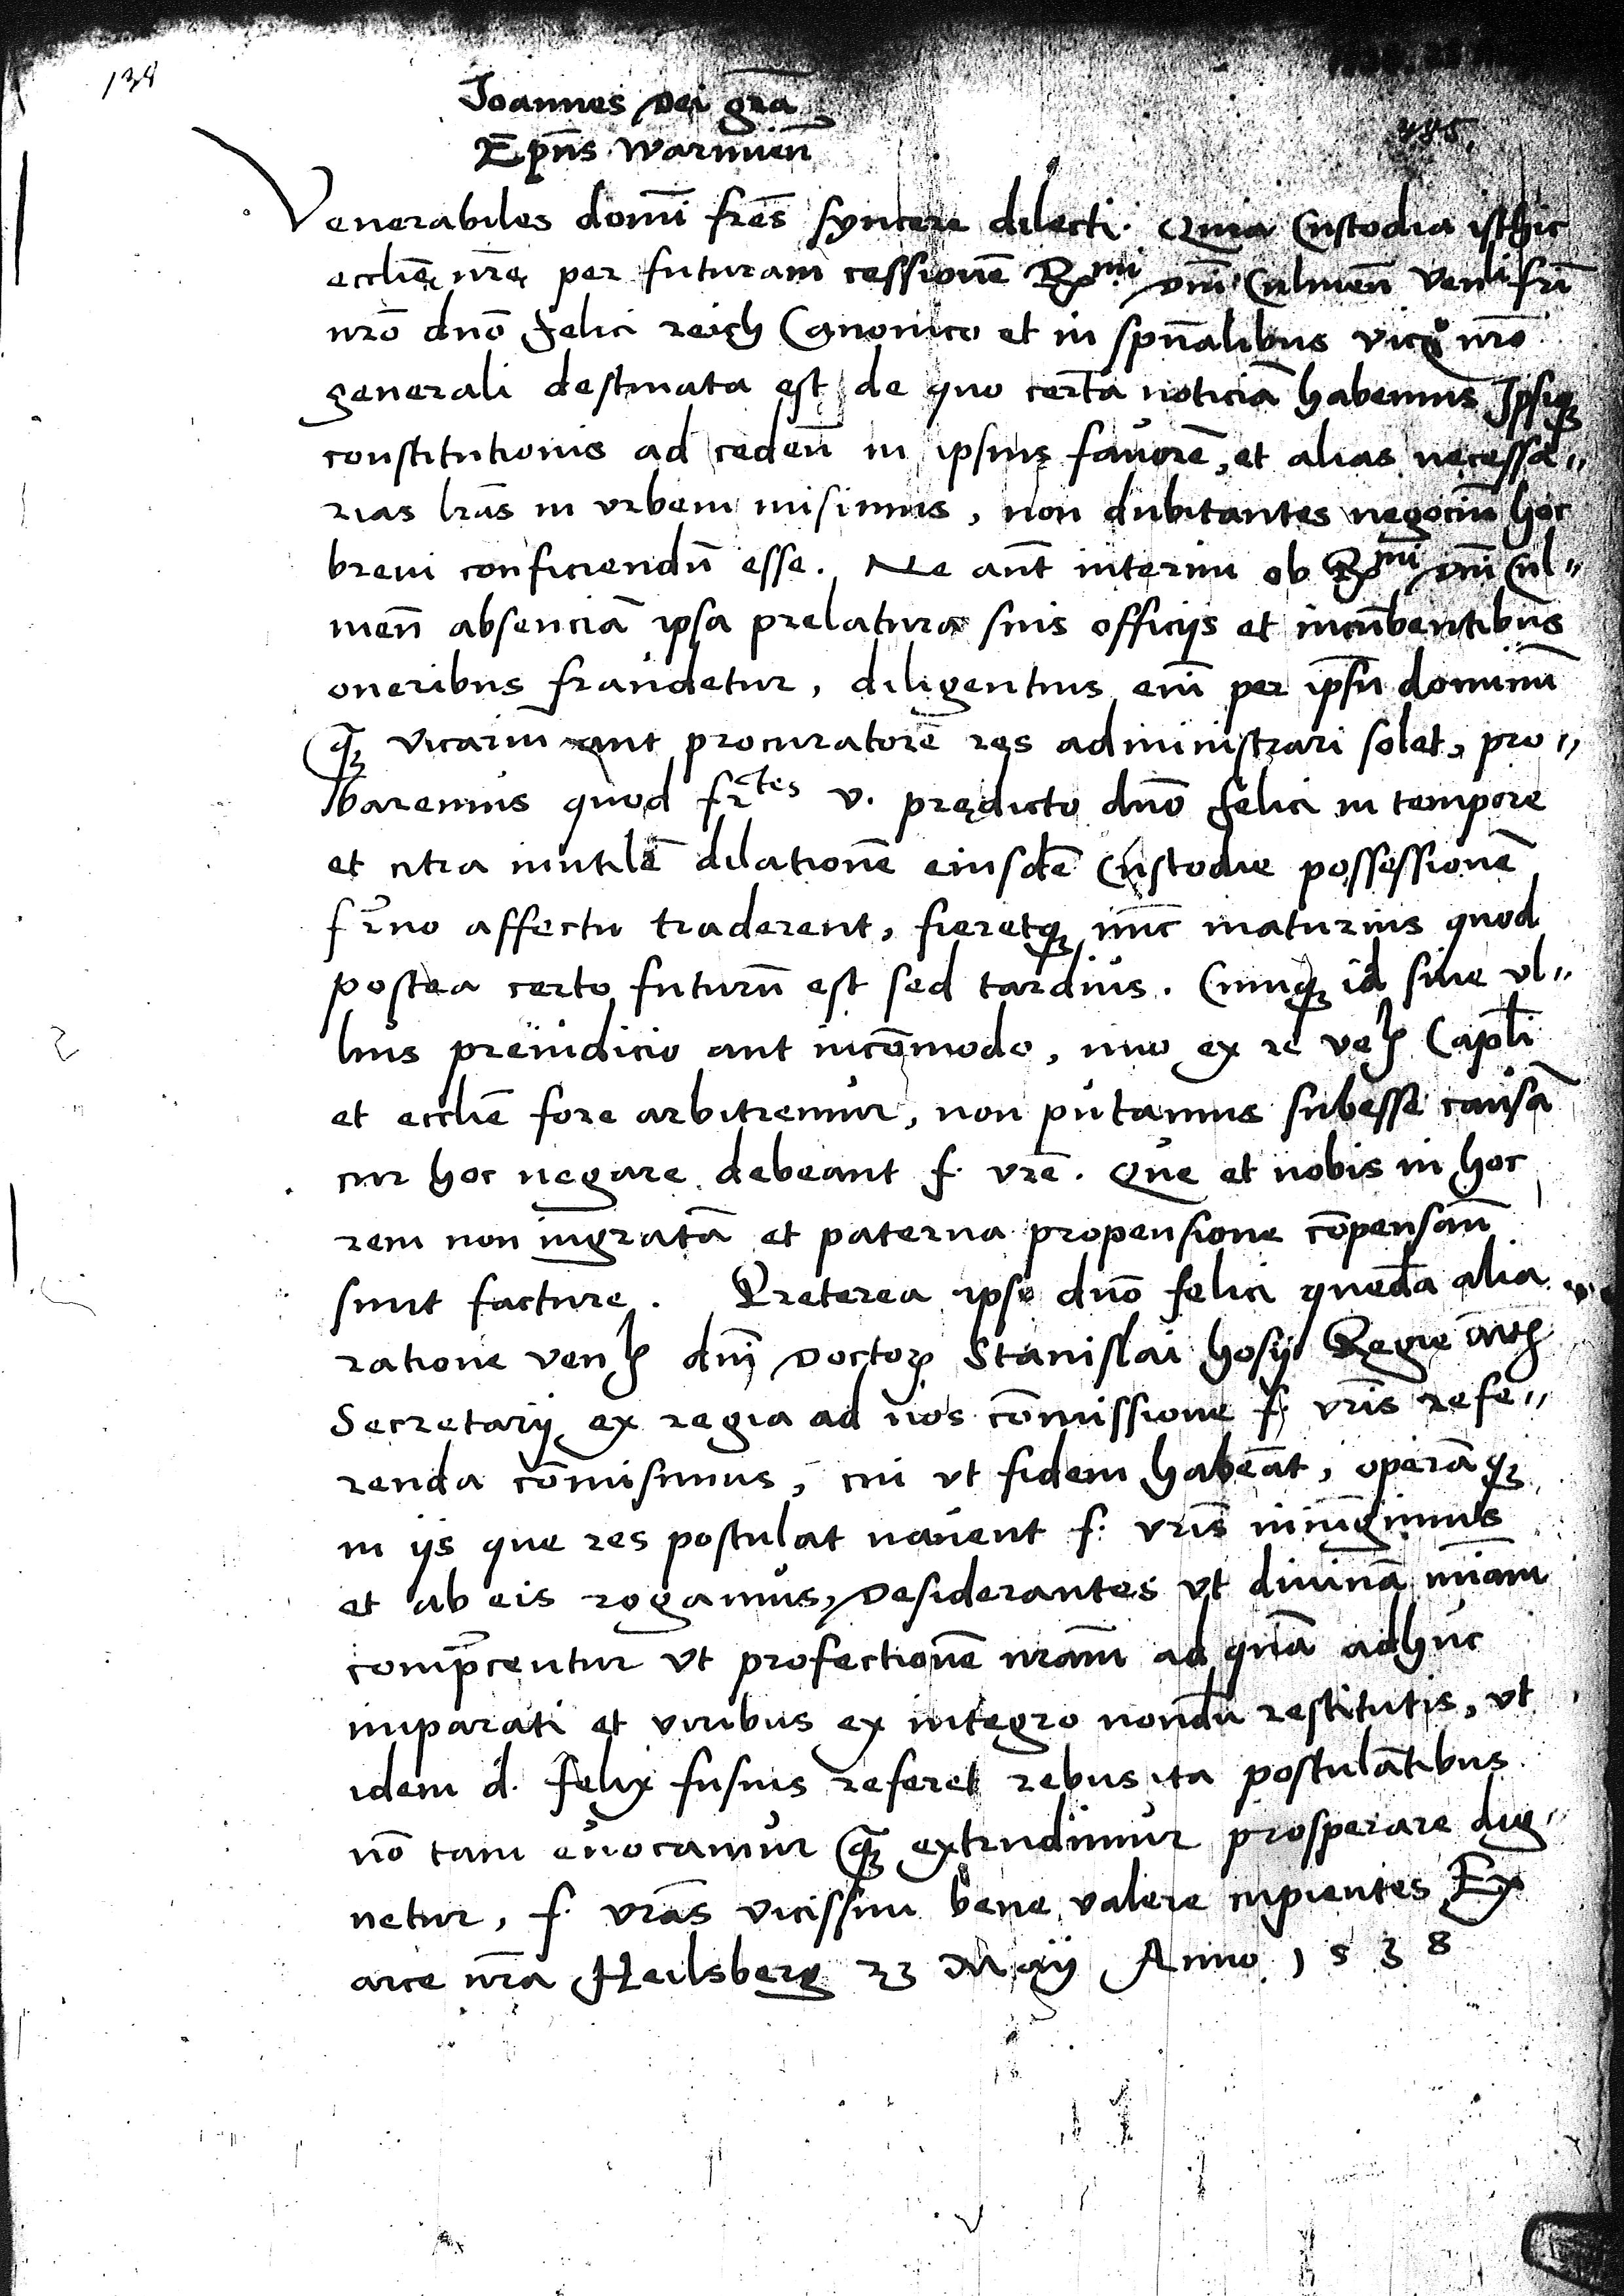 138
Joannes Dei gr̄a
Ep̄us Warmien̄
Venerabiles domi̅ fr̄es syncere dilecti. Quia Custodia isthic
eccl̄ię nr̄ę per futuram cessionē Rmi dn̄i Culmen̄ Ven̄li fr̄i
nr̄o dn̄o Felici reich Canonico et in sp̄ualibus vico nr̄o
generali destinata est de quo certā noticiā habemus Ipsiq
constitutionis ad ceden̄ in ipsius fauorē, et alias necessa„
rias l̄ras in vrbem misimus, non dubitantes negociū hoc
breui conficiendū esse. Ne aūt interim ob Rmi dn̄i Cul„
men̄ absenciā ipsa prelatura suis officijs et incūbentibus
oneribus fraudetur, diligentius eni̅ per ip̄su dominū
q̄ vicariū aut procuratorē res administrari solet, pro„
baremus quod frtes v. prędicto dn̄o Felici in tempore
et citra inutilē dilationē eiusdē Custodie possessionē
fr̄no affectu traderent, fieretq nūc maturius quod
postea certo futurū est sed tardius. Cumq id sine vl„
lius preiudicio aut incōmodo, imo ex re veh Capl̄i
et eccl̄ie fore arbitremur, non putamus subesse causā
cur hoc negare debeant f. vrē. Que et nobis in hoc
rem non ingratā et paterna propensione cōpensan̄
sunt facture. Preterea ipsi dn̄o Felici quedā alia
ratione ven̄ dn̄i Doctor Stanislai hosij Regie
Secretarij ex regia ad nos cōmissione f. vrīs refe„
renda cōmisimus, cui vt fidem habeāt, operāq
in ijs que res postulat nauent f. vrīs iniūgimus
et ab eis rogamus, Desiderantes vt diuinā miām
comp̄centur vt profectionē nrām ad quā adhuc
imparati et viribus ex integro nondū restitutis, vt
idem d. Felix fusius referet rebus ita postulātibus
nō tam euocamur q̄ extrudimur prosperare dig„
netur, f. vrās vicissim bene valere cupientes Ex
arce nr̄a Heilsberg 23 Maij Anno 1538